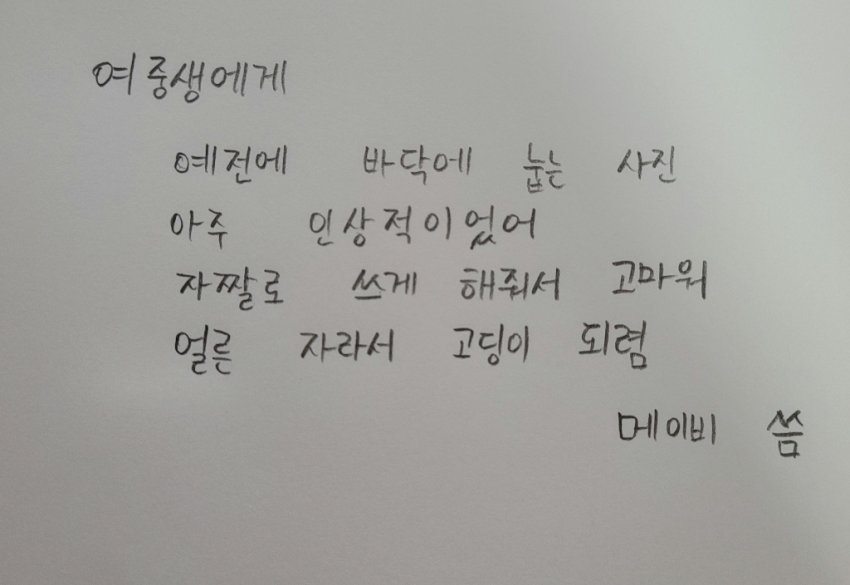 여중생에게
예전에 바닥에 눕는 사진
아주 인상적이었어
자짤로 쓰게 해줘서 고마워
얼른 자라서 고딩이 되렴
메이비 씀